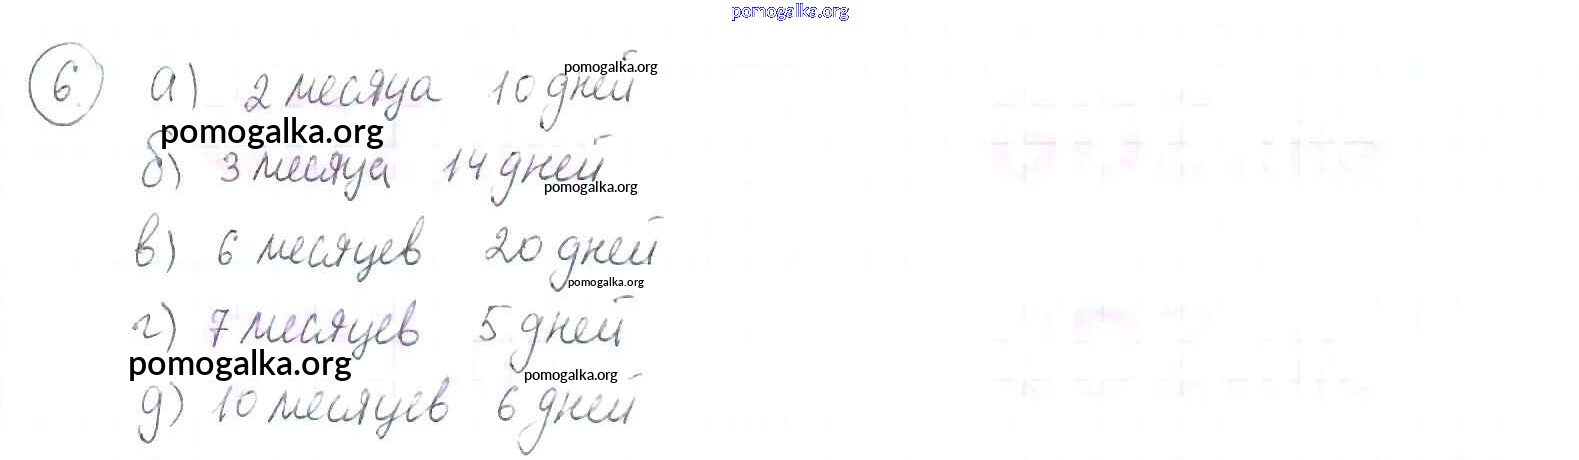 pomogalka.org
6 а) 2 месяца 10 дней
pomogalka.org
pomogalka.org
б) 3 месяца 14 дней
pomogalka.org
в) 6 месяцев 20 дней
pomogalka.org
г) 7 месяцев 5 дней
pomogalka.org
pomogalka.org
д) 10 месяцев 6 дней